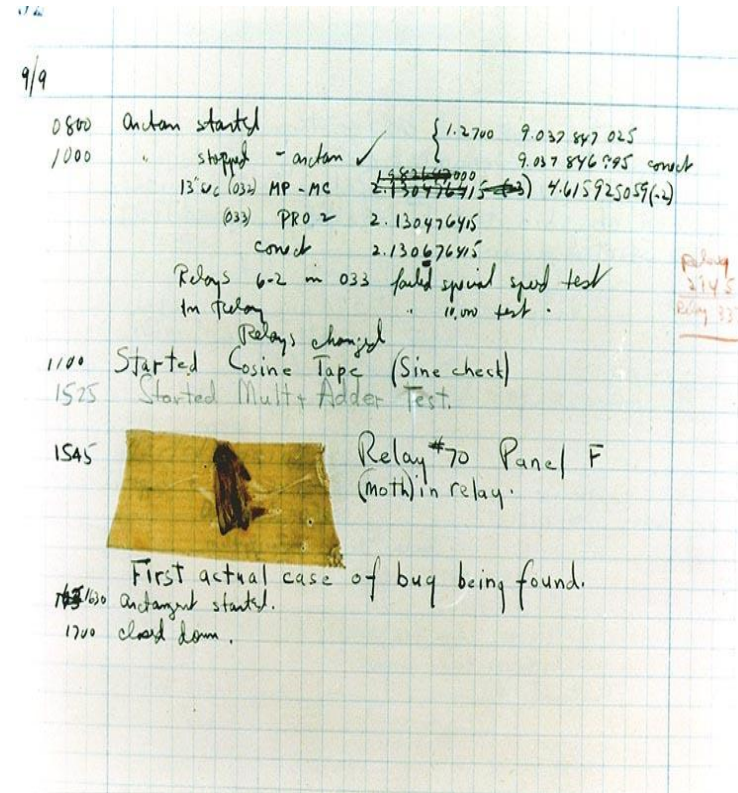 9/9
0800 Antan started { 1.2700 9.037 847 025
1000 " stopped - antan ✓ 9.037 846 995 conect
13"uc (032) MP - MC 2.130476415 (-3) 4.615925059(-2)
(033) PRO 2 2.130476415
conect 2.130676415
Relays 6-2 in 033 failed special speed test
In Relay " 10,000 test.
Relays changed
1100 Started Cosine Tape (Sine check)
1525 Started Mult+ Adder Test.
1545 Relay #70 Panel F
(moth) in relay.
First actual case of bug being found.
1630 Antangent started.
1700 closed down.